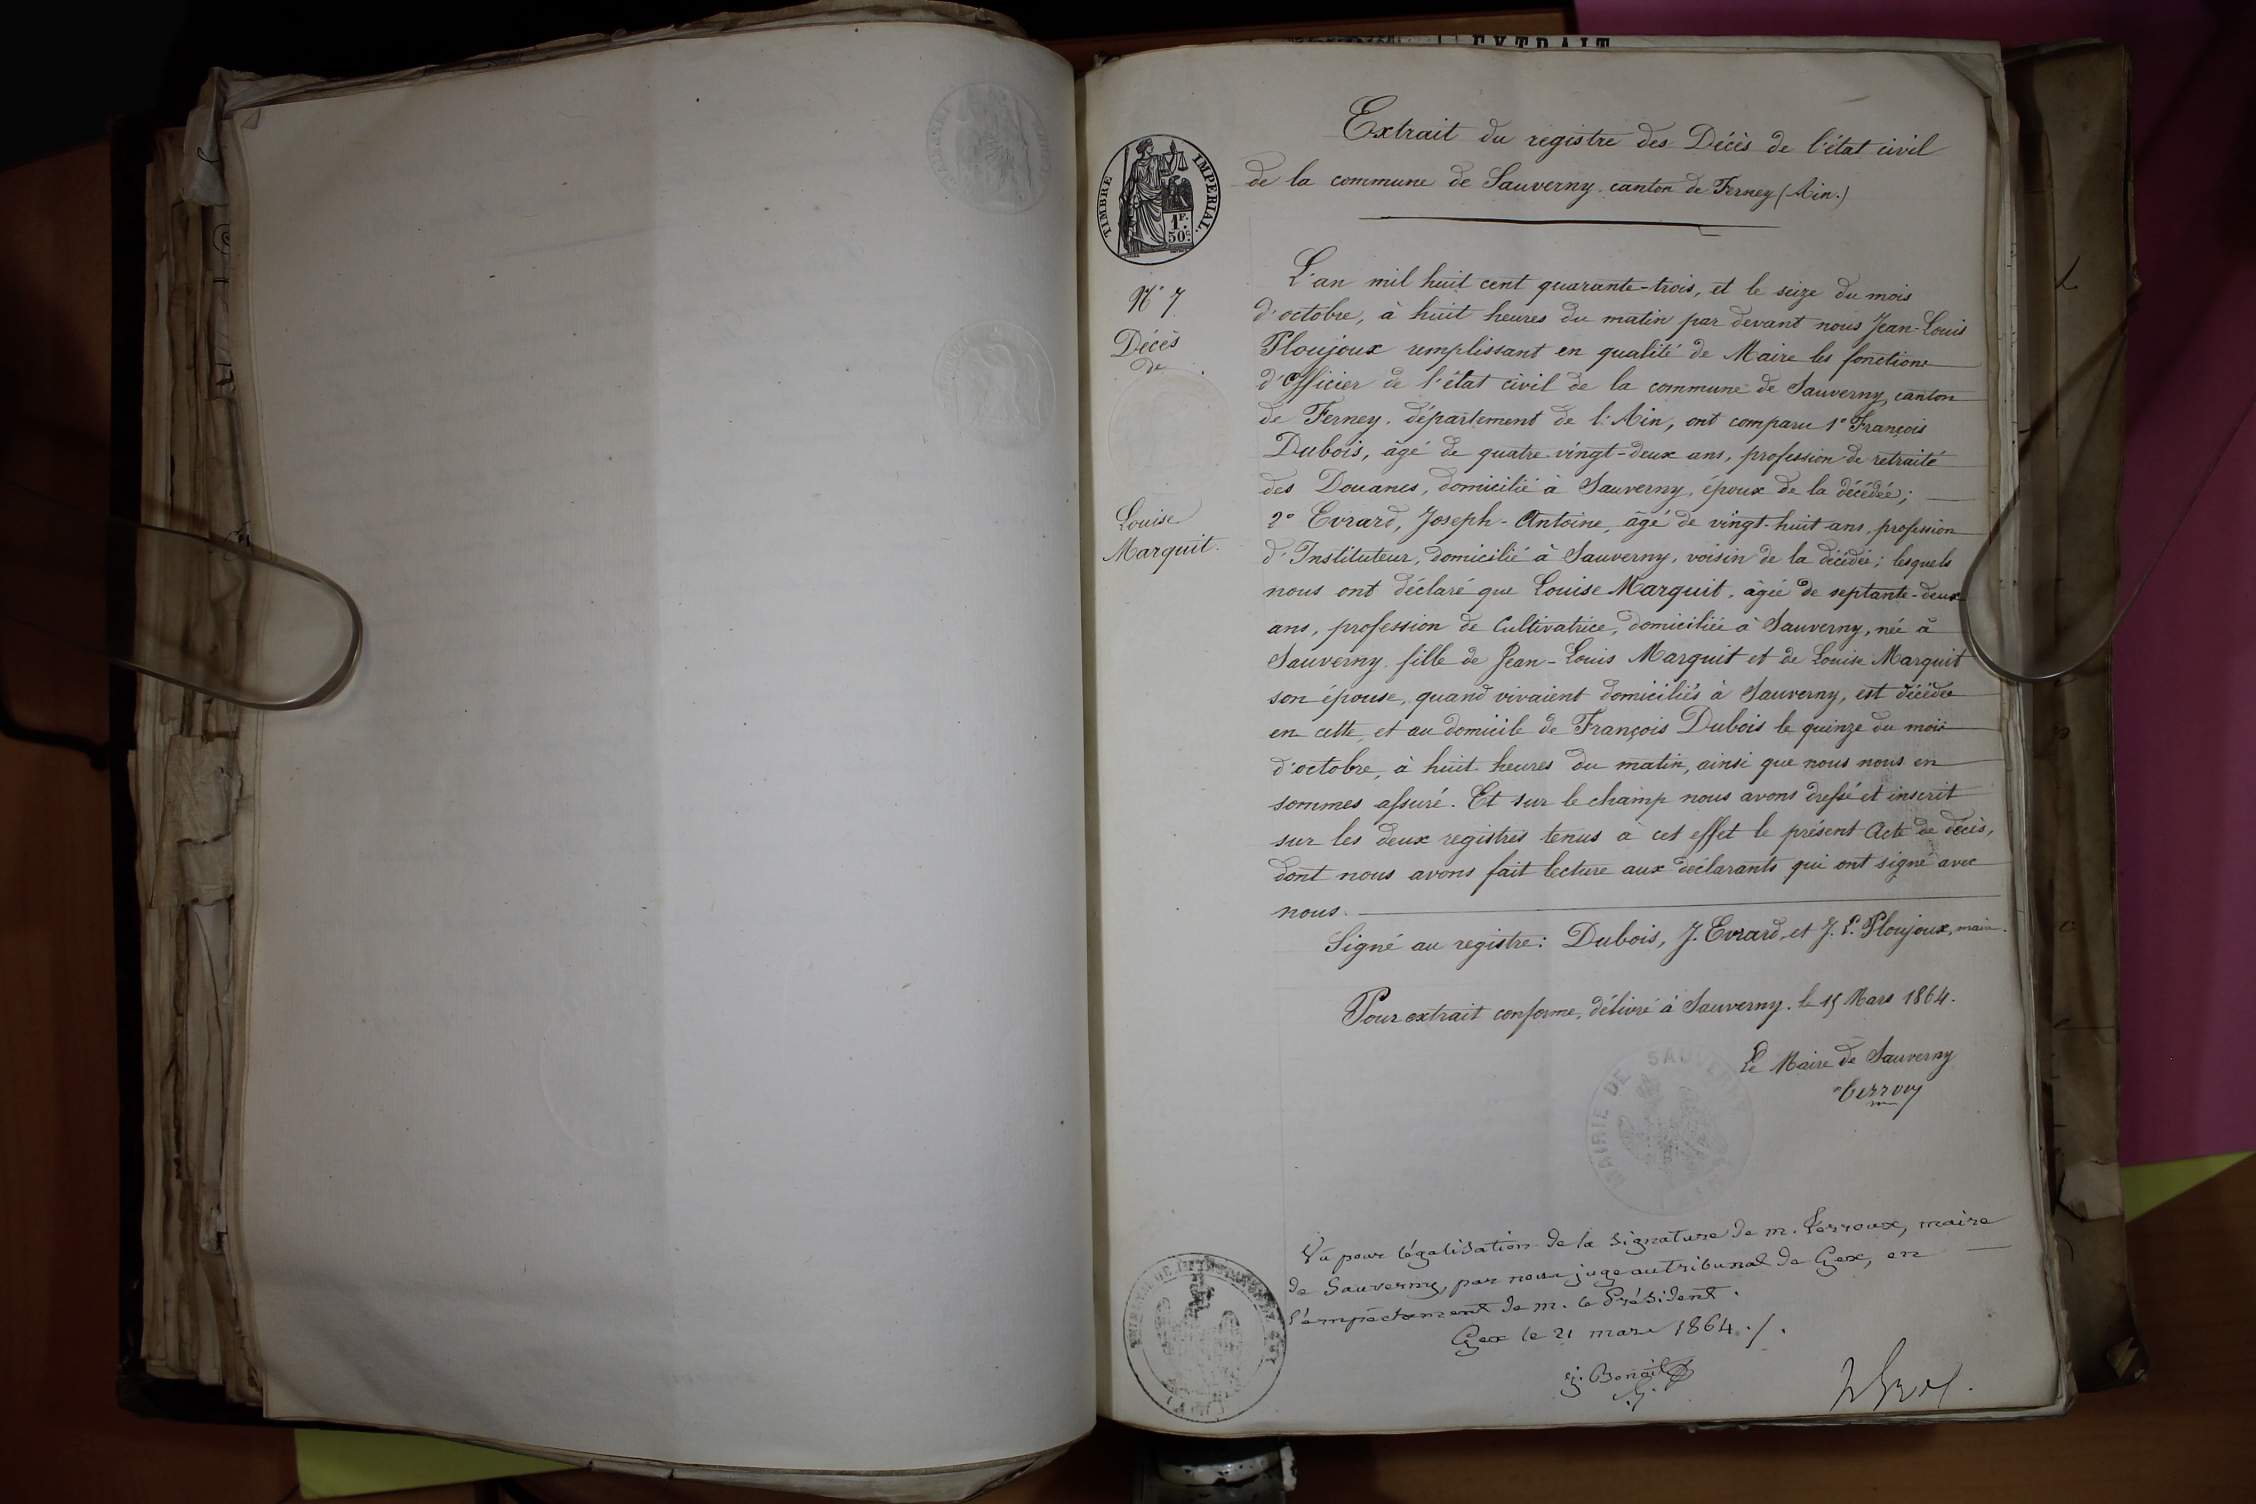 EXTRAIT
Extrait du registre des Décès de l'état civil
de la commune de Sauverny canton de Ferney (Ain.)
TIMBRE IMPERIAL.
1F.
50c
N° 7
Décès
de
Louise
Marquit.
L'an mil huit cent quarante-trois, et le seize du mois
d'octobre, à huit heures du matin par devant nous Jean-Louis
Ploujoux remplissant en qualité de Maire les fonctions
d'officier de l'état civil de la commune de Sauverny, canton
de Ferney, département de l'Ain, ont comparu 1° François
Dubois, âgé de quatre-vingt-deux ans, profession de retraité
des Douanes, domicilié à Sauverny, époux de la décédée;
2° Evrard, Joseph-Antoine, âgé de vingt-huit ans, profession
d'Instituteur, domicilié à Sauverny, voisin de la décédée; lesquels
nous ont déclaré que Louise Marquit, âgée de septante-deux
ans, profession de Cultivatrice, domiciliée à Sauverny, née à
Sauverny fille de Jean-Louis Marquit et de Louise Marquit
son épouse, quand vivaient domiciliés à Sauverny, est décédée
en cette, et au domicile de François Dubois le quinze du mois
d'octobre, à huit heures du matin, ainsi que nous nous en
sommes assuré. Et sur le champ nous avons dressé et inscrit
sur les deux registres tenus à cet effet le présent Acte de décès,
dont nous avons fait lecture aux déclarants qui ont signé avec
nous.
Signé au registre: Dubois, J. Evrard, et J. L. Ploujoux, maire.
Pour extrait conforme, délivré à Sauverny, le 15 Mars 1864.
Le Maire de Sauverny
MAIRIE DE SAUVERNY
Vu pour légalisation de la signature de m. Perroux, maire
de Sauverny, par nous juge au tribunal de Gex, en
l'empêchement de m. le Président.
Gex le 21 mars 1864./.
j. Benoit